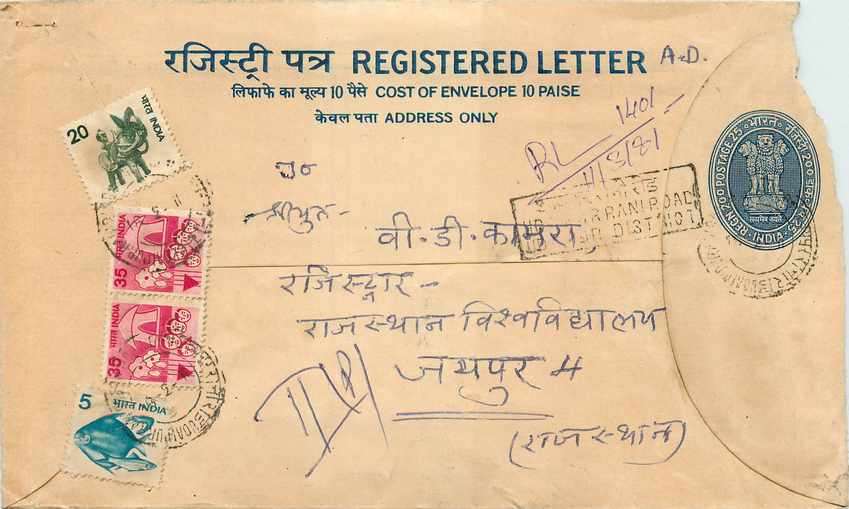 रजिस्ट्री पत्र REGISTERED LETTER A.D.
लिफाफे का मूल्य 10 पैसे COST OF ENVELOPE 10 PAISE
केवल पता ADDRESS ONLY
20 भारत INDIA
RL 1401
11/3/81
REGN. 200 POSTAGE 25 भारत रजिस्ट्री 200 डाक 25
INDIA
सत्यमेव जयते
श्रीयुत -
RANI ROAD
DISTRICT
वी. डी. कामरा
35 भारत INDIA
रजिस्ट्रार -
राजस्थान विश्वविद्यालय
35 भारत INDIA
जयपुर 4
5 भारत INDIA
UDAIPUR
(राजस्थान)